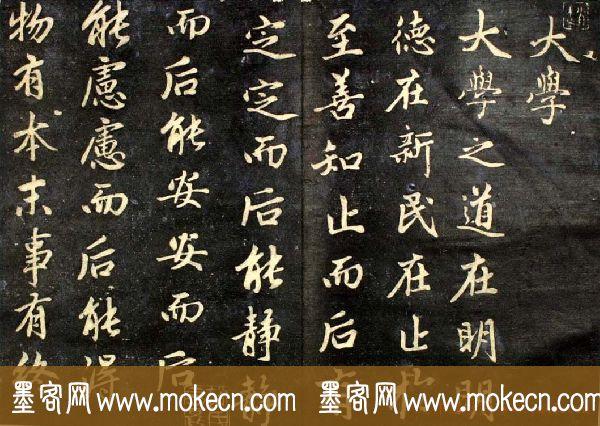 大學
大學之道在明明
德在新民在止於
至善知止而后有
定定而后能静静
而后能安安而后
能慮慮而后能得
物有本末事有終
墨客网 www.mokecn.com 墨客网 www.mokecn.com